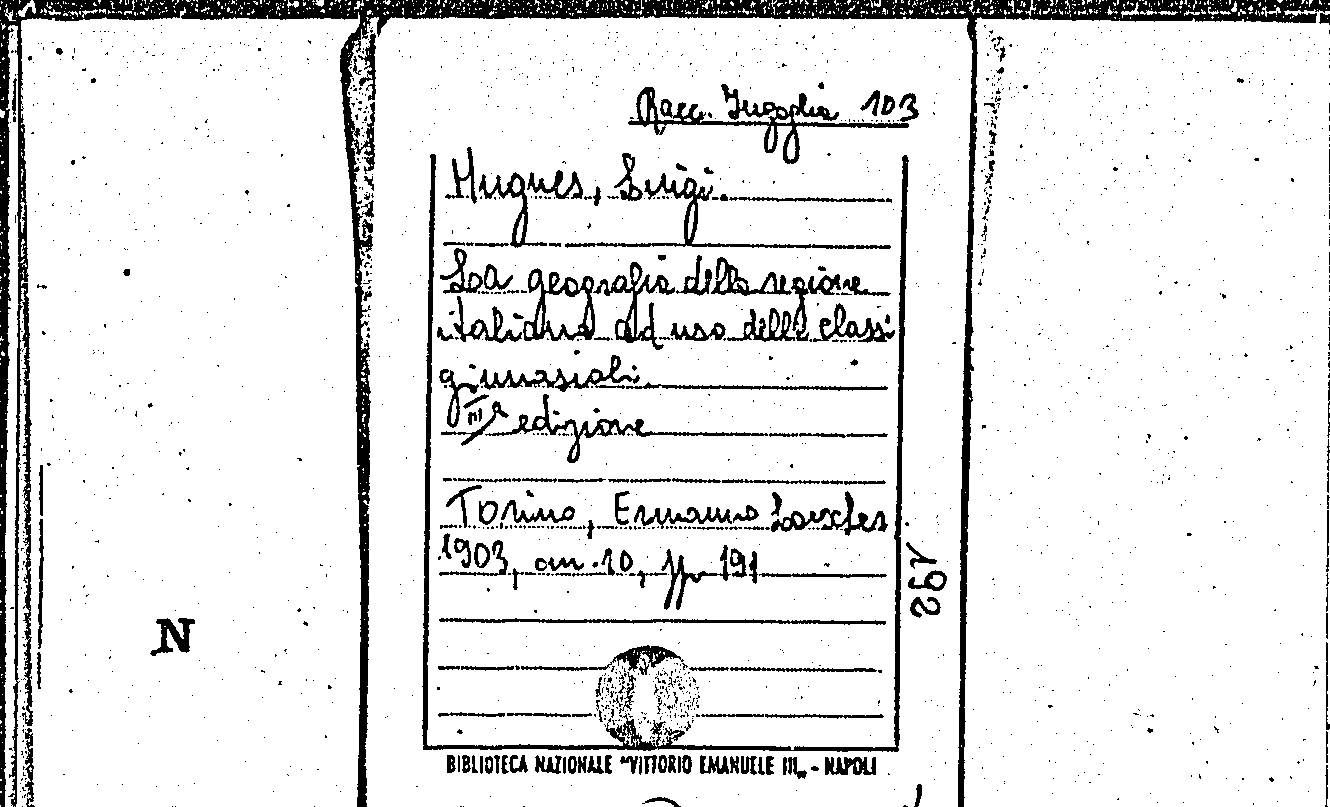 Racc. Ingoglia 103
Hugues, Luigi.
La geografia della regione
italiana ad uso delle classi
ginnasiali.
IIIª edizione
Torino, Ermanno Loescher
1903, in-10, pp 191
192
N
BIBLIOTECA NAZIONALE "VITTORIO EMANUELE III„ - NAPOLI